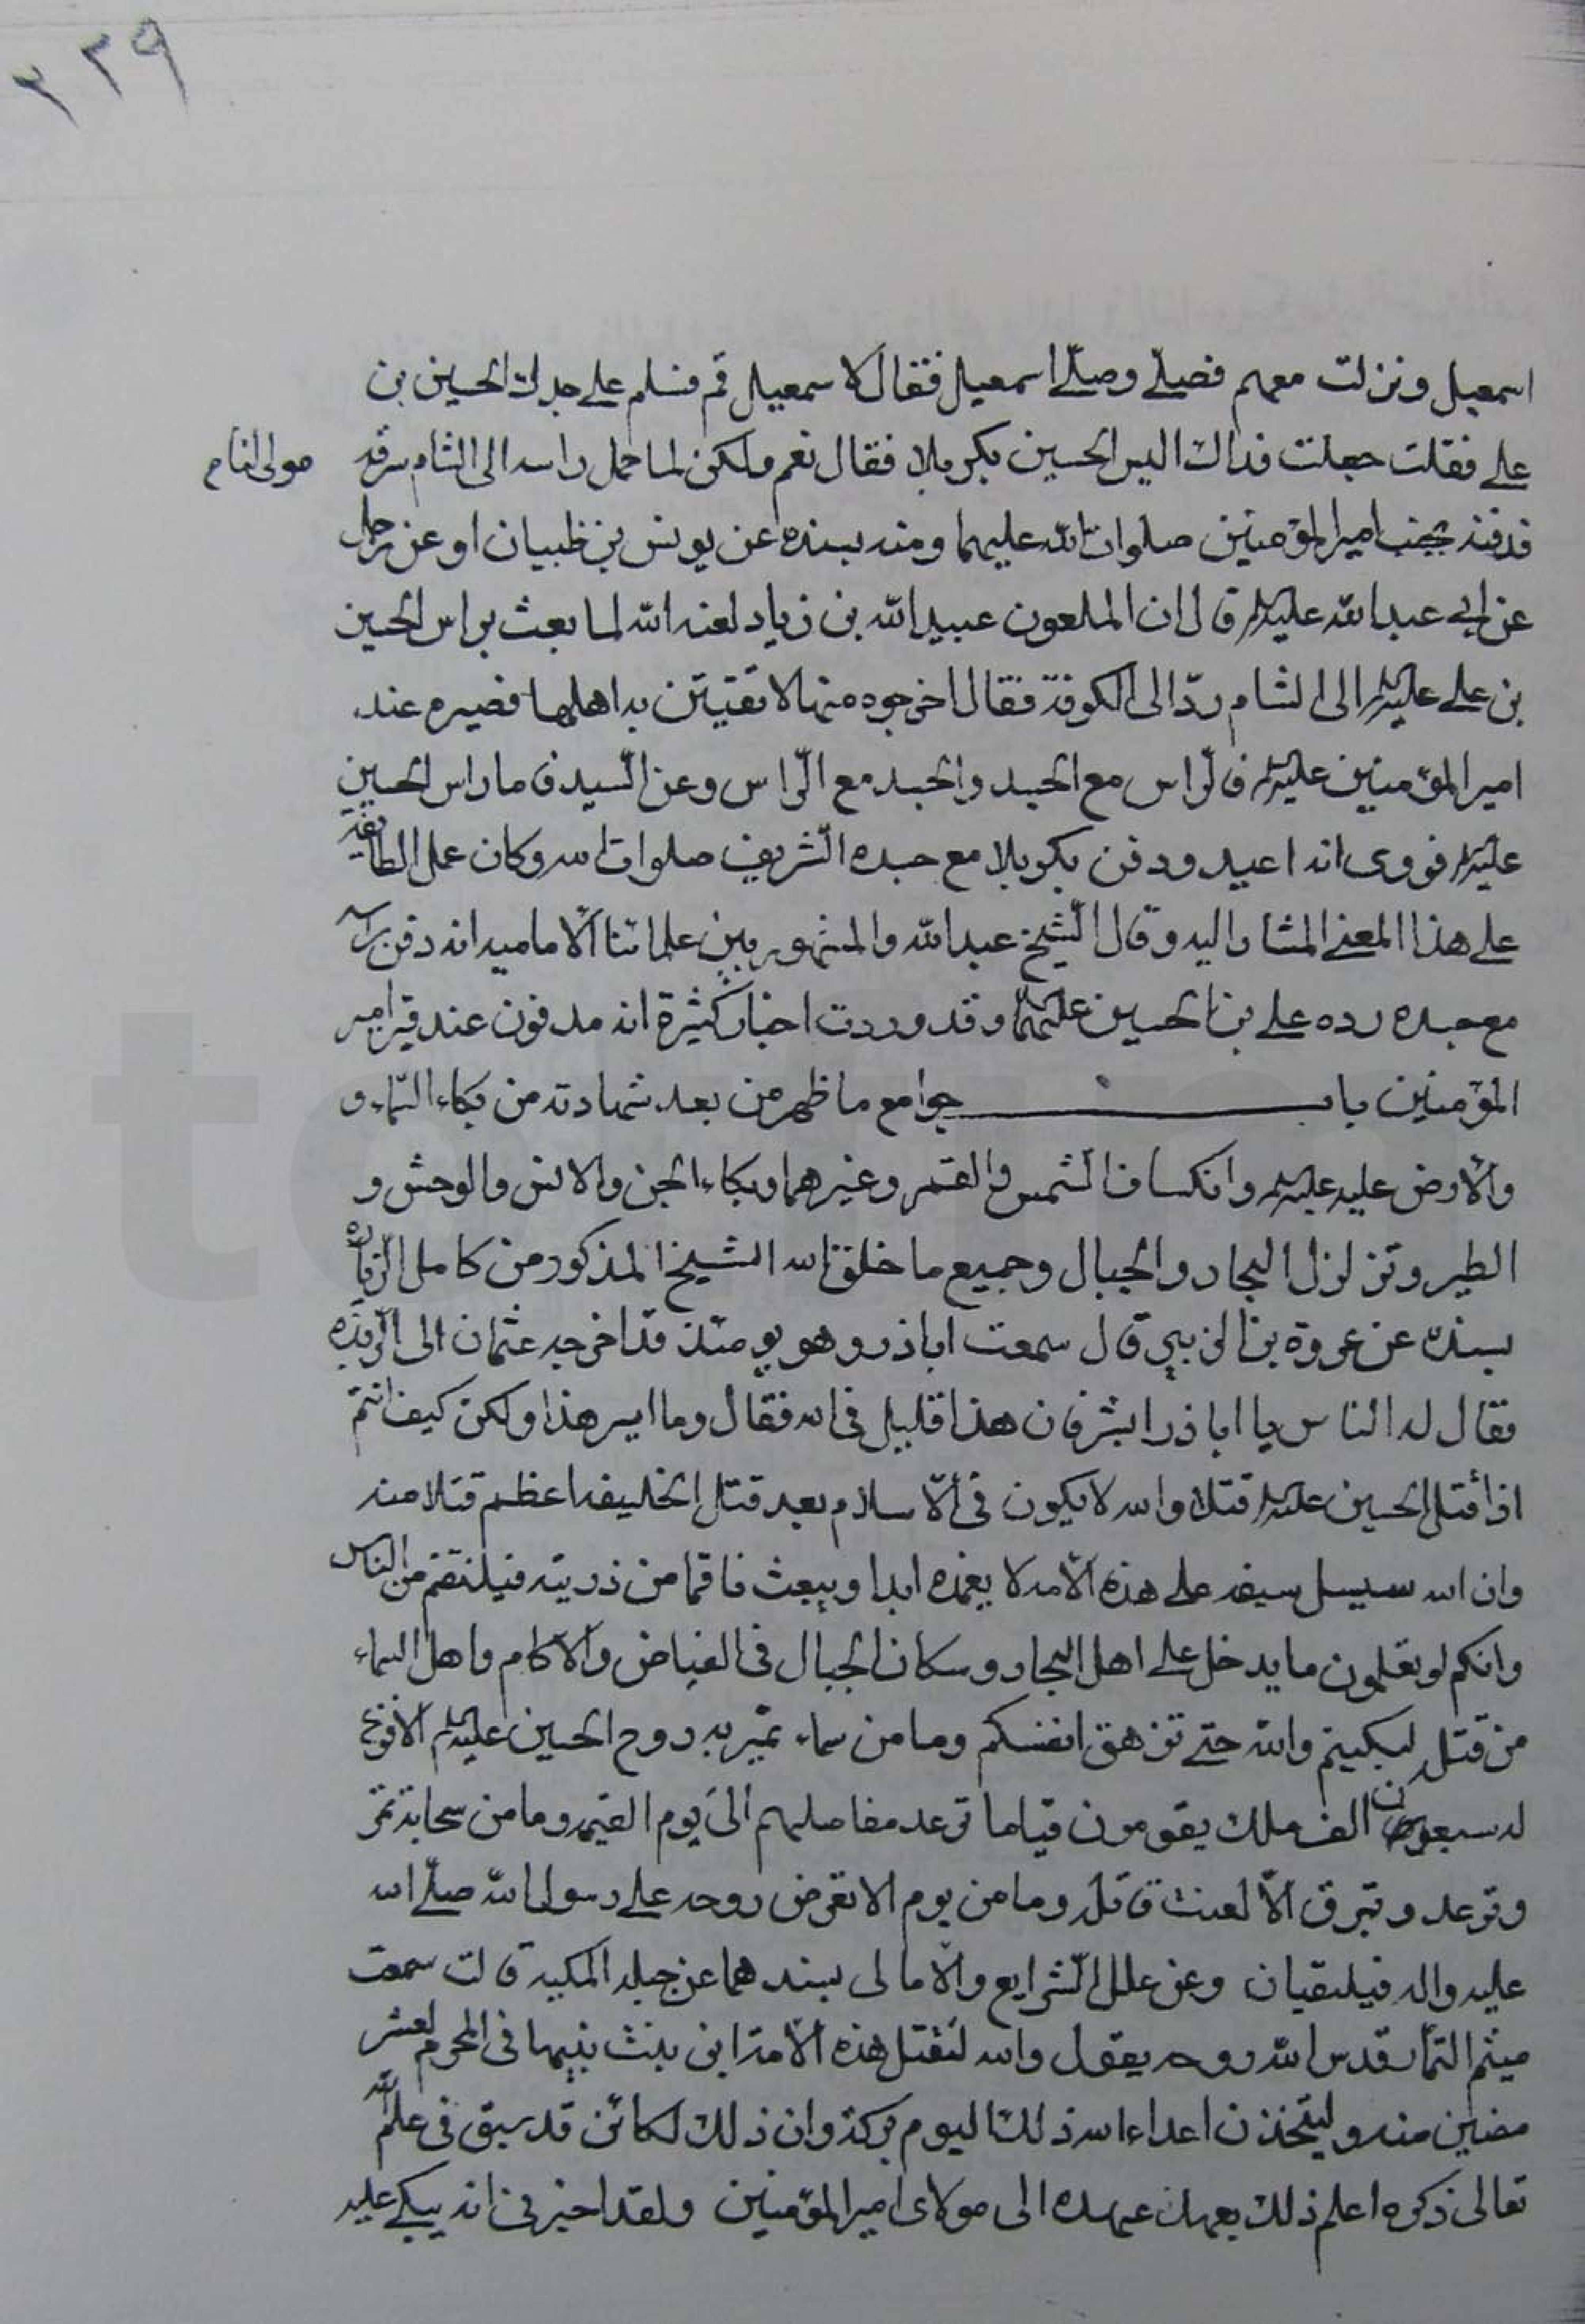 ٣٣٩
اسمعيل ونزلت معهم فصلى وصلى اسمعيل فقال لاسمعيل قم فسلم على جدك الحسين بن
على فقلت جعلت فداك اليس الحسين بكربلا فقال نعم ولكن لما حمل راسه الى الشام سرقه
مولى لنا
فدفنه بجنب امير المؤمنين صلوات الله عليهما ومنه بسنده عن يونس بن ظبيان او عن رجل
عن ابى عبد الله عليه السلام قال ان الملعون عبيد الله بن زياد لعنه الله لما بعث براس الحسين
بن على عليه السلام الى الشام ردّ الى الكوفة فقال اخرجوه منها لا تفتتن به اهلها فصيره عند
امير المؤمنين عليه السلام فالرّاس مع الجسد والجسد مع الرّاس وعن السّيد فاما راس الحسين
عليه السلام فروى انه اعيد ودفن بكربلا مع جسده الشّريف صلوات الله وكان عمل الطائفة
على هذا المعنى المشار اليه وقال الشّيخ عبد الله والمشهور بين علمائنا الاماميه انه دفن براسه
مع جسده رده على بن الحسين عليهما وقد وردت اخبار كثيرة انه مدفون عند قبر امير
المؤمنين باب جوامع ما ظهر من بعد شهادته من بكاء السّماء و
والارض عليه عليه السلام وانكساف الشّمس والقمر وغيرهما وبكاء الجن والانس والوحش و
الطير وتزلزل البحار والجبال وجميع ما خلق الله الشيخ المذكور من كامل الزّيارة
بسنده عن عروة بن الزبير قال سمعت اباذر وهو يومئذ قد اخرجه عثمان الى الرّبذه
فقال له الناس يا اباذر ابشر فان هذا قليل فى الله فقال وما ايسر هذا ولكن كيف انتم
اذا قتل الحسين عليه السلام قتلا والله لا يكون فى الاسلام بعد قتل الخليفه اعظم قتلا منه
وان الله سيسل سيفه على هذه الامه لا يغمده ابدا ويبعث قائما من ذريته فيلنتقم من الناس
وانكم لو تعلمون ما يدخل على اهل البحار وسكان الجبال فى الغياض والاكام واهل السماء
من قتله لبكيتم والله حتى تزهق انفسكم وما من سماء تمرّ به روح الحسين عليه السلام الا فزع
له سبعون الف ملك يقومون قياما ترعد مفاصلهم الى يوم القيمه وما من سحابة تمرّ
وترعد وتبرق الّا لعنت قاتله وما من يوم الا تعرض روحه على رسول الله صلّى الله
عليه واله فيلتقيان وعن علل الشّرايع والامالى بسندهما عن جبله المكيه قالت سمعت
ميثم التمّار قدس الله روحه يقول والله لتقتل هذه الامة ابن بنت نبيها فى المحرم لعشر
مضين منه وليتّخذن اعداء الله ذلك اليوم بركة وان ذلك لكائن قد سبق فى علم الله
تعالى ذكره اعلم ذلك بعهد عهده الى مولاى امير المؤمنين ولقد اخبرنى انه يبكى عليه